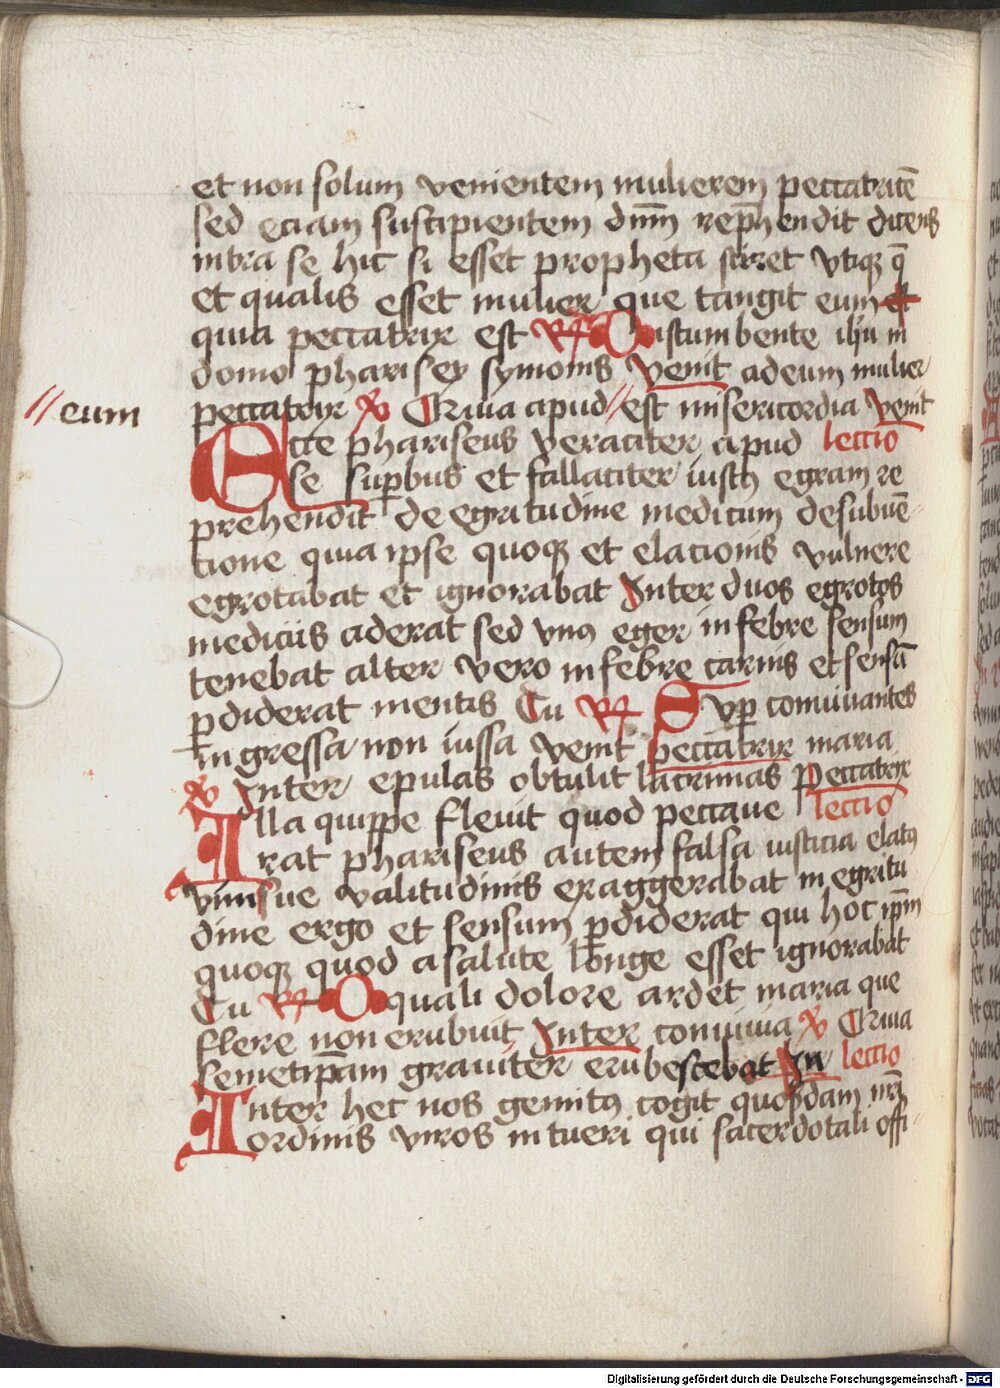 et non solum venientem mulierem peccatricē
sed eciam suscipientem dn̄m rep̄hendit dicens
intra se hic si esset propheta sciret vtiqꝫ q̄
et qualis esset mulier que tangit eum et
quia peccatrix est R Discumbente ihū in
domo pharisey symonis venit ad eum mulier
//eum
peccatrix V Quia apud//est misericordia venit
Ecce phariseus veraciter apud lectio
se suꝑbus et fallaciter iustꝰ egram re
prehendit de egritudine medicum de subuē-
tione quia ipse quoqꝫ et elacionis vulnere
egrotabat et ignorabat Inter duos egrotos
medicus aderat sed vnꝰ eger in febre sensum
tenebat alter vero in febre carnis et sensū
ꝑdiderat mentis Tu R Suꝑ conuiuantes
Ingressa non iussa venit peccatrix maria
V Inter epulas obtulit lacrimas Peccatrix
Illa quippe fleuit quod peccaue lectio
rat phariseus autem falsa iusticia elatꝰ
vim sue valitudinis exaggerabat in egritu
dine ergo et sensum ꝑdiderat qui hoc ip̄m
quoqꝫ quod a salute longe esset ignorabat
Tu R O quali dolore ardet maria que
flere non erubuit Inter conuiuia V Quia
semetip̄am grauiter erubescebat In lectio
Inter hec nos gemitꝰ cogit quosdam nr̄i
ordinis viros intueri qui sacerdotali offi-
Digitalisierung gefördert durch die Deutsche Forschungsgemeinschaft - DFG